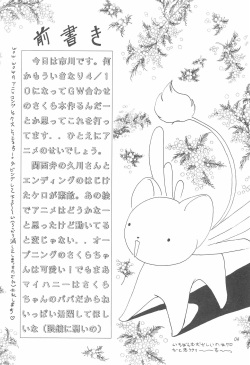 前書き
今日は市川です。何
かもういきなり４／１
０になってＧＷ合わせ
のさくら本作るんだー
とか思ってこれを打っ
てます．．ひとえにア
ニメのせいでしょう。
関西弁の久川さんと
エンディングのはじけ
たケロが素敵。あの絵
でアニメはどうかなー
と思ったけど動いてる
と変じゃない．．オー
プニングのさくらちゃ
んは可愛い！でもまあ
マイハニーはさくら
ちゃんのパパだからね
いっぱい活躍してほし
いな（眼鏡に弱いの）